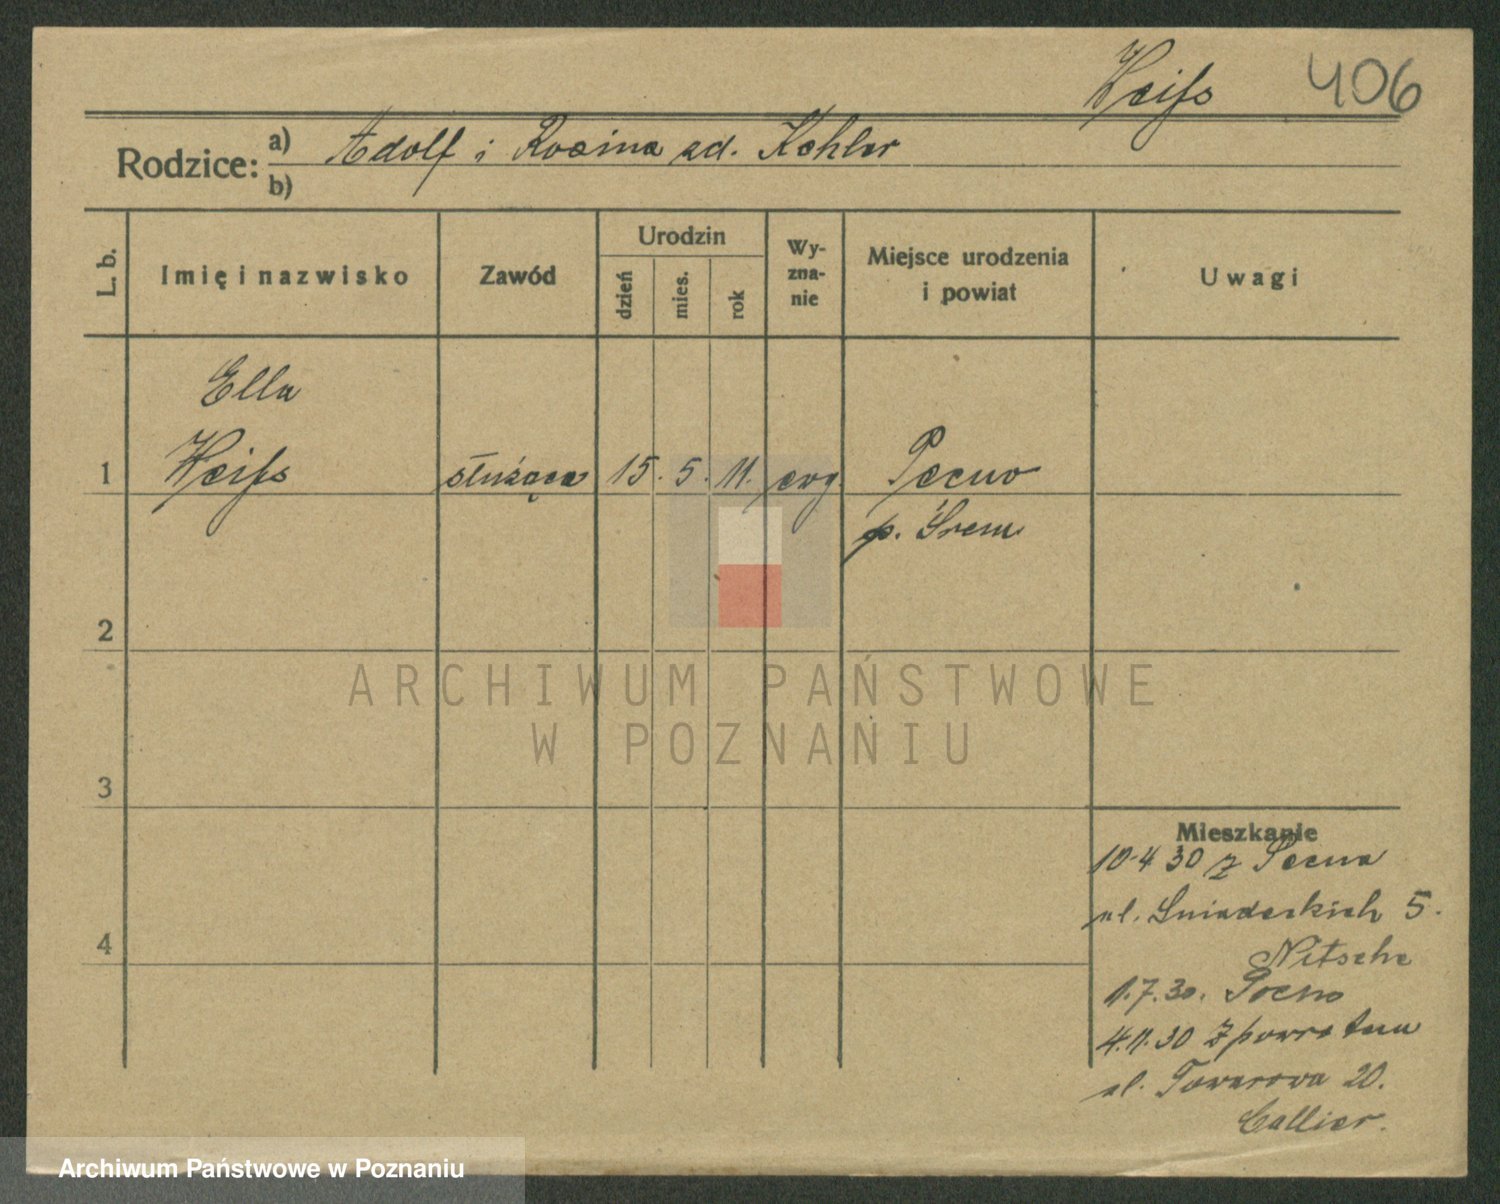 Weiſs 406
Rodzice: a) Adolf i Rosina zd. Kohler
b)
L. b. Imię i nazwisko Zawód Urodzin dzień mies. rok Wy-zna-nie Miejsce urodzenia i powiat Uwagi
Ella
1 Weiſs służąca 15. 5. 11. ewg Pecno
p. Śrem
2
3
4
Mieszkanie
10.4 30 z Pecna
ul. Śniadeckich 5.
Nitsche
1.7.30. Pecno
4.11.30 z powrotem
ul. Towarowa 20.
Callier.
ARCHIWUM PAŃSTWOWE
W POZNANIU
Archiwum Państwowe w Poznaniu